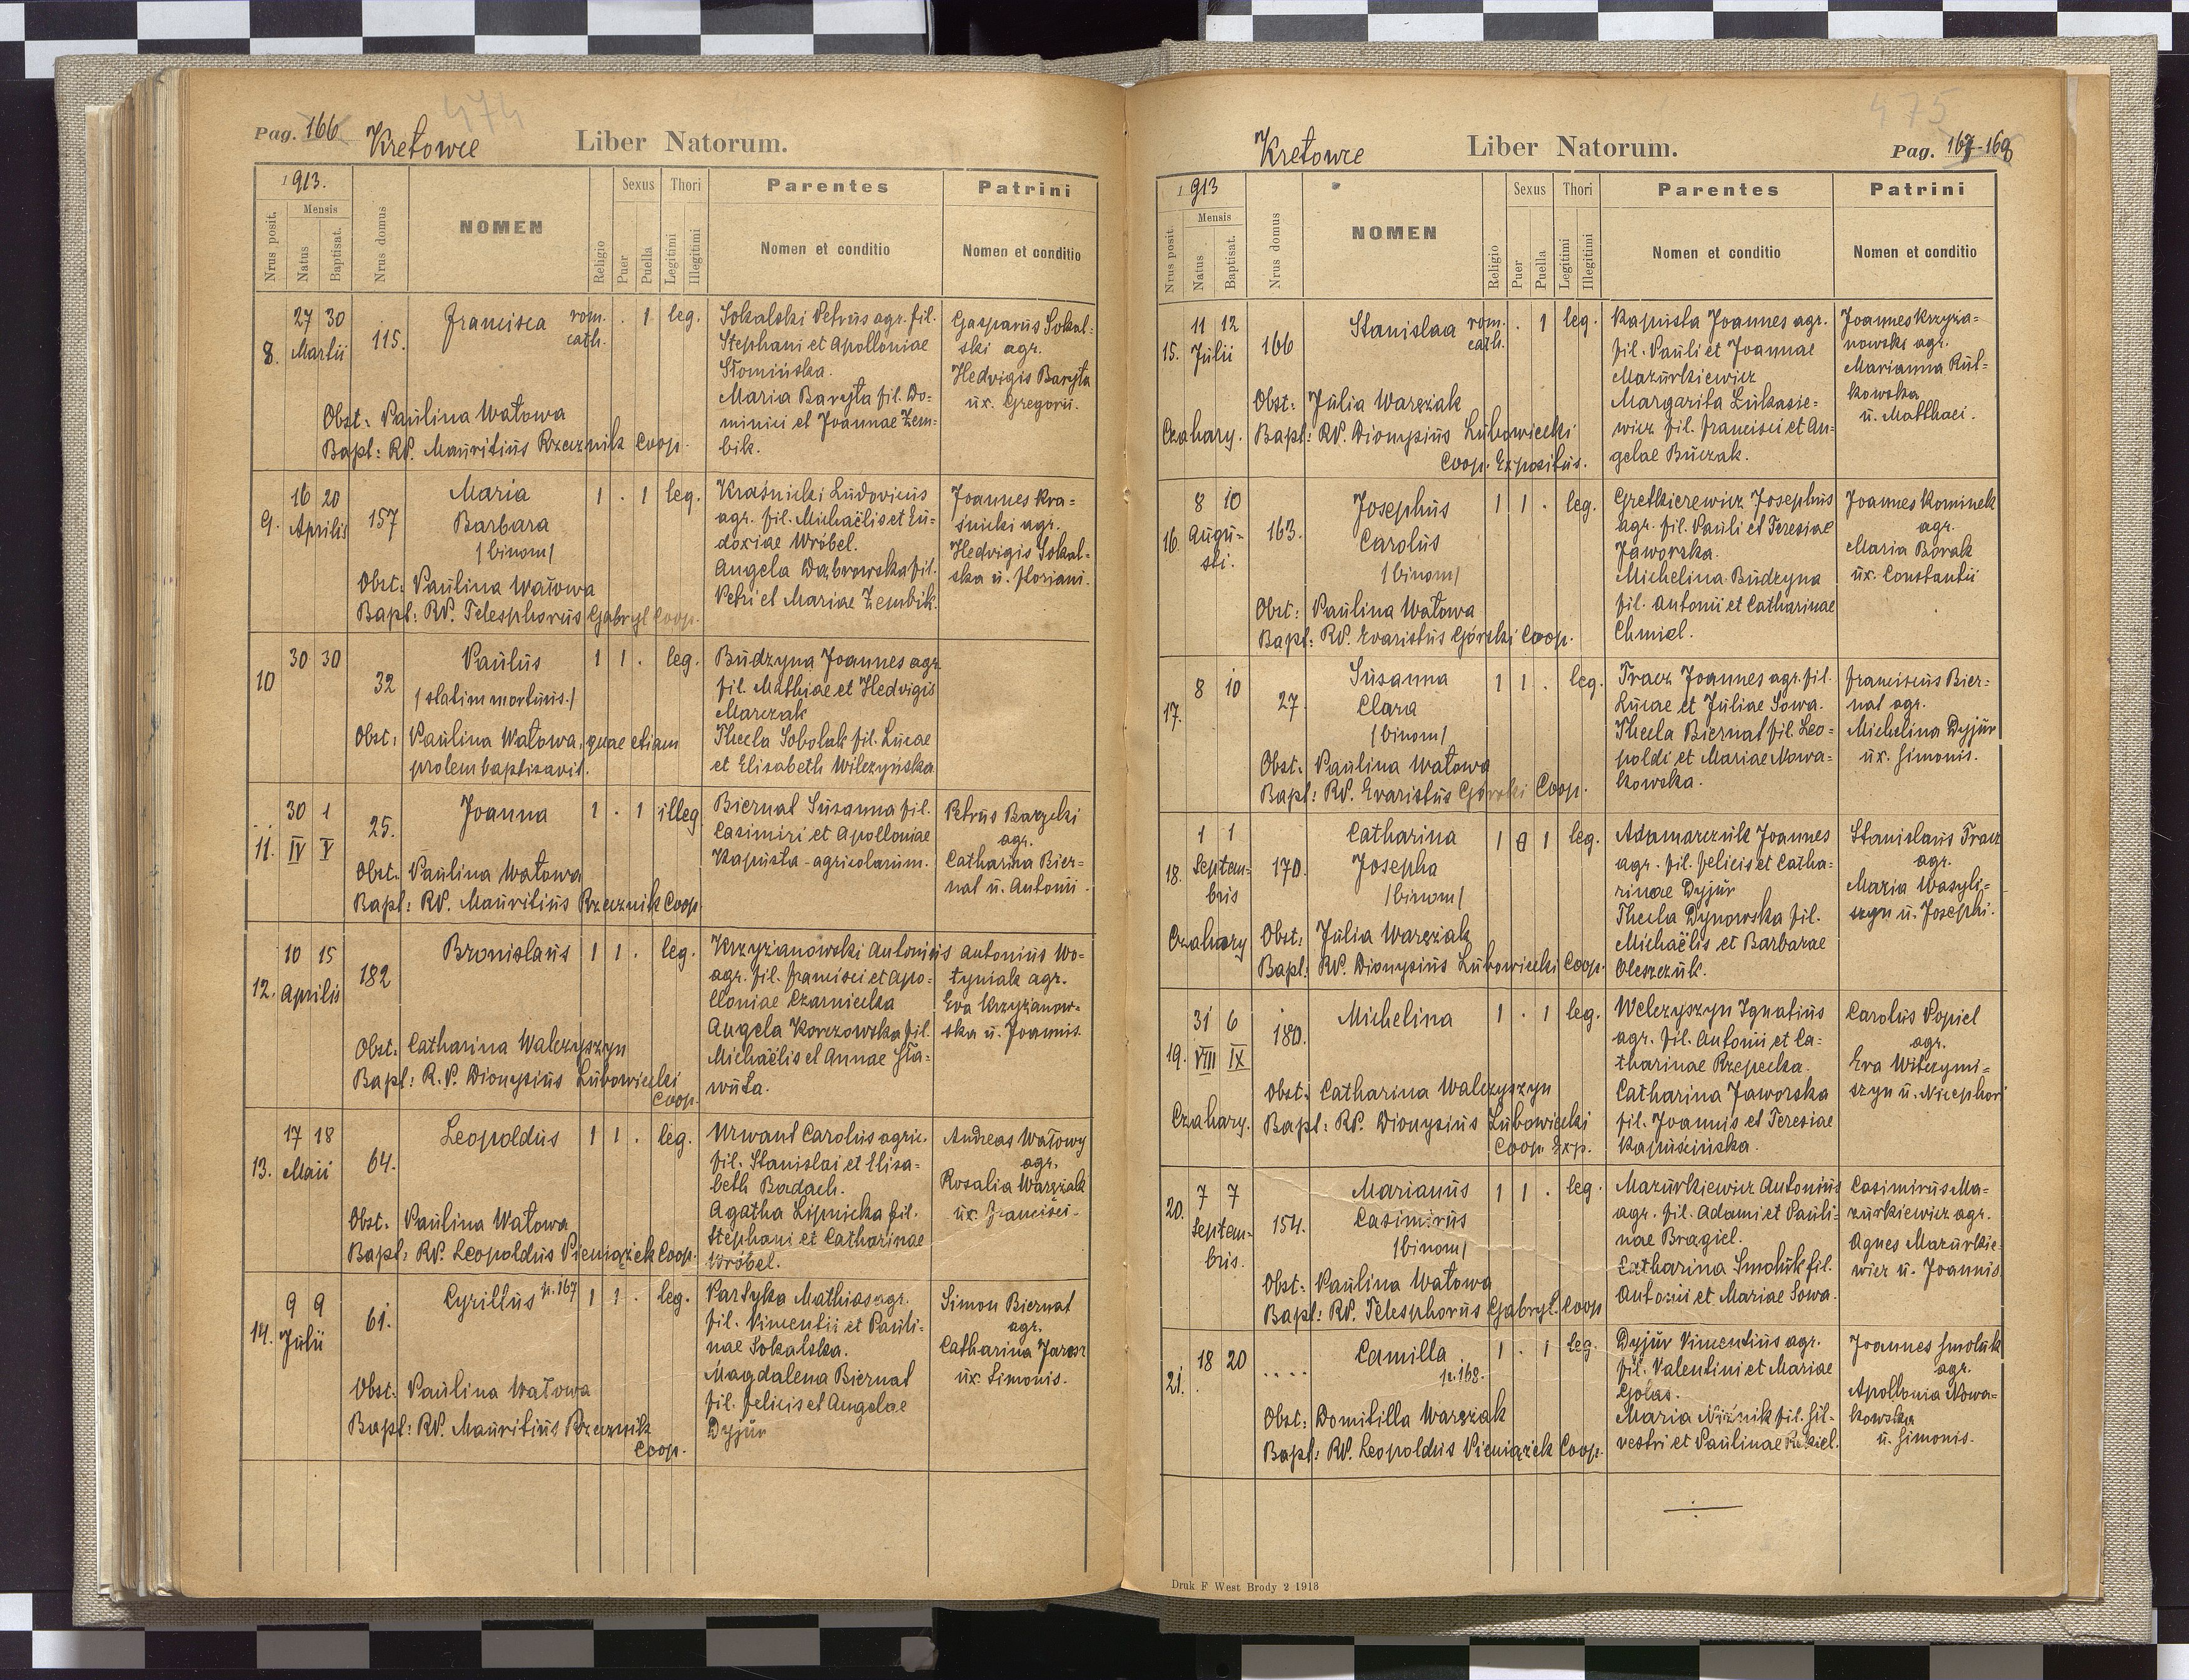 474
Pag. 166 Kretowce Liber Natorum.
1913.
Nrus posit.
Mensis
Natus
Baptisat.
Nrus domus
NOMEN
Religio
Sexus
Puer
Puella
Thori
Legitimi
Illegitimi
Parentes
Nomen et conditio
Patrini
Nomen et conditio
8. 27 30 Martii 115. Francisca rom. cath. . 1 leg.
Obst: Paulina Watowa
Bapt: RP. Mauritius Rzeznik Coop.
Sokalski Petrus agr. fil.
Stephani et Apolloniae
Słomińska.
Maria Baryła fil. Do=
minici et Joannae Zem=
bik.
Gasparus Sokal=
ski agr.
Hedvigis Baryła
ux. Gregorii.
9. 16 20 Aprilis 157 Maria 1 . 1 leg.
Barbara
/binom/
Obst: Paulina Watowa
Bapt: RP. Telesphorus Gabryl Coop.
Kraśnicki Ludovicus
agr. fil. Michaëlis et Eu=
doxiae Wróbel.
Angela Dąbrowska fil.
Petri et Mariae Zembik.
Joannes Kra=
śnicki agr.
Hedvigis Sokal=
ska u. Floriani.
10 30 30 32 Paulus 1 1 . leg.
/statim mortuus./
Obst: Paulina Watowa, quae etiam
prolem baptisavit.
Budzyna Joannes agr.
fil. Mathiae et Hedvigis
Marczak
Thecla Sobolak fil. Lucae
et Elisabeth Wilczyńska
11. 30 1 IV V 25. Joanna 1 . 1 illeg
Obst: Paulina Watowa
Bapt: RP. Mauritius Rzeznik Coop.
Biernat Susanna fil.
Casimiri et Apolloniae
Kapusta - agricolarum.
Petrus Barzelki
agr.
Catharina Bier=
nat u. Antonii.
12. 10 15 Aprilis 182 Bronislaus 1 1 . leg.
Obst: Catharina Walczyszyn
Bapt: R.P. Dionysius Lubowiecki
Coop.
Krzyżanowski Antonius
agr. fil. Francisci et Apo=
lloniae Czarniecka
Angela Korczowska fil.
Michaëlis et Annae Sła=
wuta.
Antonius Wo=
tyniak agr.
Eva Krzyżanow=
ska u. Joannis.
13. 17 18 Maii 64. Leopoldus 1 1 . leg.
Obst. Paulina Watowa
Bapt: RP. Leopoldus Pieniążek Coop.
Urwant Carolus agric.
fil. Stanislai et Elisa=
beth Badach.
Agatha Lipnicka fil.
Stephani et Catharinae
Wróbel.
Andreas Watowy
agr.
Rosalia Warężak
ux. Francisci.
14. 9 9 Julii 61. Cyrillus p. 167 1 1 . leg.
Obst: Paulina Watowa
Bapt: RP. Mauritius Rzeznik
Coop.
Partyka Mathias agr.
fil. Vincentii et Pauli=
nae Sokalska.
Magdalena Biernat
fil. Felicis et Angelae
Dyjur
Simon Biernat
agr.
Catharina Jarosz
ux. Simonis.
475
Kretowce Liber Natorum. Pag. 167-168
1913
Nrus posit.
Mensis
Natus
Baptisat.
Nrus domus
NOMEN
Religio
Sexus
Puer
Puella
Thori
Legitimi
Illegitimi
Parentes
Nomen et conditio
Patrini
Nomen et conditio
15. 11 12 Julii 166 Stanislaa rom. cath. . 1 leg.
Obst: Julia Warężak
Czahary. Bapt: RP. Dionysius Lubowiecki
Coop. Expositus.
Kapusta Joannes agr.
fil. Pauli et Joannae
Mazurkiewicz
Margarita Lukasie=
wicz fil. Francisci et An=
gelae Buczak.
Joannes Krzyża=
nowski agr.
Marianna Rut=
kowska
u. Matthaei.
16. 8 10 Augu=
sti. 163. Josephus 1 1 . leg.
Carolus
/binom/
Obst: Paulina Watowa
Bapt: RP. Evaristus Górski Coop.
Gretkierewicz Josephus
agr. fil. Pauli et Teresiae
Jaworska.
Michelina Budzyna
fil. Antonii et Catharinae
Chmiel.
Joannes Kominek
agr.
Maria Borak
ux. Constantii
17. 8 10 27. Susanna 1 1 . leg.
Clara
/binom/
Obst: Paulina Watowa
Bapt: RP. Evaristus Górski Coop.
Tracz Joannes agr. fil.
Lucae et Juliae Sowa.
Thecla Biernat fil. Leo=
poldi et Mariae Nowa=
kowska.
Franciscus Bier=
nat agr.
Michelina Dyjur
ux. Simonis.
18. 1 1 Septem=
bris 170. Catharina 1 1 leg.
Josepha
/binom/
Czahary Obst: Julia Warężak
Bapt: RP. Dionysius Lubowiecki Coop.
Adamarczuk Joannes
agr. fil. Felicis et Catha=
rinae Dyjur
Thecla Dynowska fil.
Michaëlis et Barbarae
Oleszczuk.
Stanislaus Tracz
agr.
Maria Wasyli=
szyn u. Josephi.
19. 31 6 VIII IX 180. Michelina 1 . 1 leg.
Obst: Catharina Walczyszyn
Czahary. Bapt: RP. Dionysius Lubowiecki
Coop. Exp.
Welczyszyn Ignatius
agr. fil. Antonii et Ca=
tharinae Rzepecka.
Catharina Jaworska
fil. Joannis et Teresiae
Kapuścińska.
Carolus Popiel
agr.
Eva Witczymi=
szyn u. Nicephori
20. 7 7 Septem=
bris. 154. Marianus 1 1 . leg.
Casimirus
/binom/
Obst: Paulina Watowa
Bapt: RP. Telesphorus Gabryl. Coop
Mazurkiewicz Antonius
agr. fil. Adami et Pauli=
nae Bragiel.
Catharina Smoluk fil.
Antonii et Mariae Sowa.
Casimirus Ma=
zurkiewicz agr.
Agnes Mazurkie=
wicz u. Joannis.
21. 18 20 .... Camilla 1 . 1 leg.
p. 168.
Obst: Domitilla Warężak
Bapt: RP. Leopoldus Pieniążek Coop.
Dyjur Vincentius agr.
fil. Valentini et Mariae
Golas.
Maria Niżnik fil. Sil=
vestri et Paulinae
Joannes Smoluk
agr.
Apollonia Nowa=
kowska
u. Simonis.
Druk F West Brody 2 1913